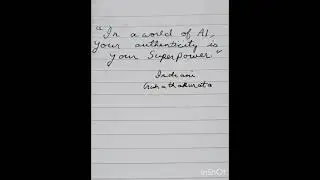 "In a world of AI,
your authenticity is
your Superpower"
Indrani
Guhathakurata
InShOt